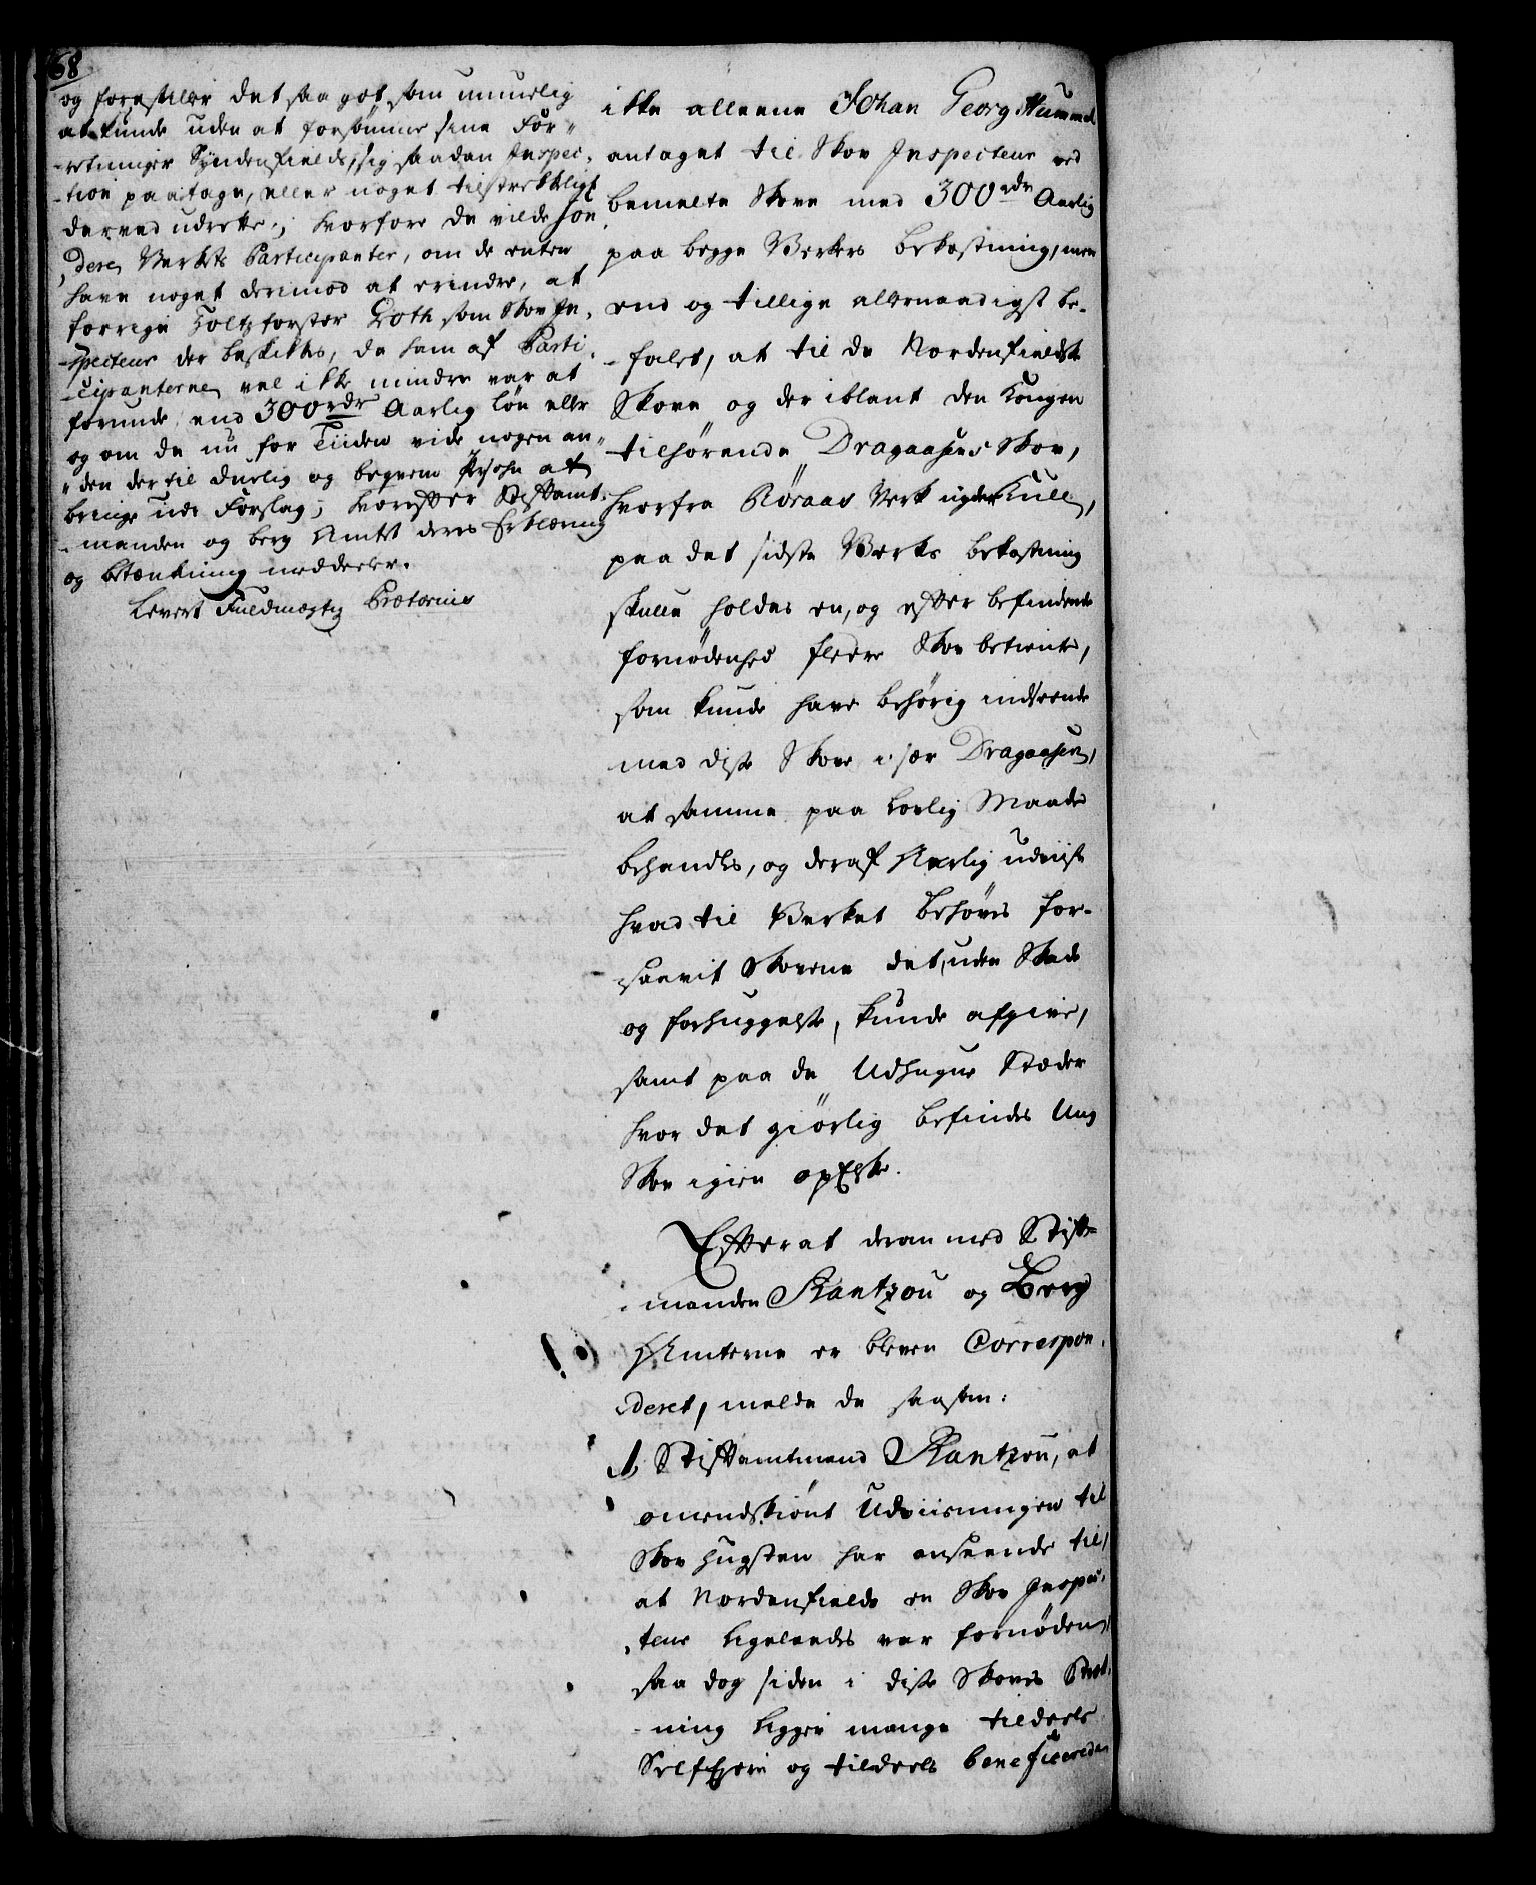 68
og forestiller det saa got som umuelig
at kunde uden at forsømme sine For-
retninger Syndenfields, sig saadan Inspec-
tion paatage, eller noget tilstrekkeligt
derved udrette; hvorfore de vilde son
dere Verkets Participanter, om de enten
have noget derimod at erindre, at
forrige Holtzforster Groth som Skov In-
specteur der beskikkes, da ham af Parti-
cipanterne vel ikke mindre var at
forunde end 300 rdr Aarlig Løn eller
og om de nu for Tiiden vide nogen an-
den der til duelig og beqvem Persohn at
bringe udi Forslag; hvorefter Stiftamt-
manden og berg Amtet deres Erklæring
og betænkning meddeeler.
Levert Fuldmægtig Prætorius
ikke alleene Johan Georg Hummel
antaget til Skov Inspecteur ved
bemelte Skove med 300 rdr Aarlig
paa begge Verkers bekostning, men
end og tillige allernaadigst be-
falet, at til de Nordenfieldske
Skove og der iblant den Kongen
tilhørende Dragaasens Skov,
hvorfra Røraas Verk nyder Kull,
paa det sidste Verks bekostning
skulle holdes en, og efter befindende
fornødenhed fleere Skov betiente,
som kunde have behørig indseende
med disse Skove i sær Dragaasen,
at samme paa lovlig Maade
behandles, og deraf Aarlig udviist
hvad til Verket behøves for-
saavit Skovene det, uden Skade
og forhuggelse, kunde afgive,
samt paa de Udhugne Stæder
hvor det giørlig befindes Ung
Skov igien opElske.
Efter at derom med Stift-
manden Rantzou og Berg
Amterne er bleven Correspon-
deret, melde de saasom:
1 Stiftamtmand Rantzou, at
omendskiønt Udviisningen til
Skov Hugsten har anseende til,
at Nordenfields en Skov Inspec-
teur ligeleedes var fornøden,
saa dog siden i disse Skoves Stræk-
ning ligger mange tildeels
SelfEjere og tildeels beneficerede